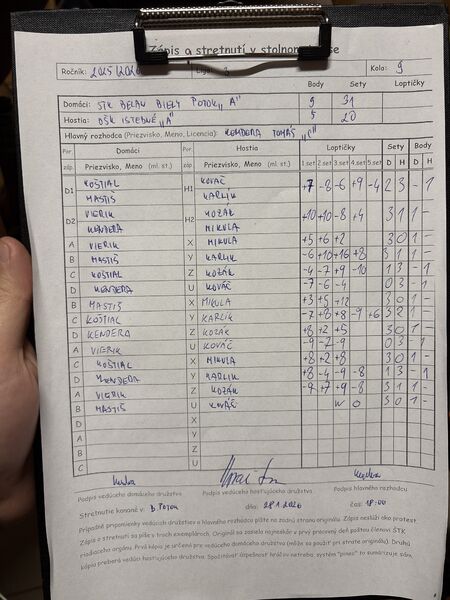 Zápis o stretnutí v stolnom se
Ročník: 2025/2026 Liga: 3 Kolo: 9
Body Sety Loptičky
Domáci: STK BELAN BIELY POTOK "A" 9 31
Hostia: OŠK ISTEBNÉ "A" 5 20
Hlavný rozhodca (Priezvisko, Meno, Licencia): KENDERA TOMÁŠ "C"
Por. Domáci Por. Hostia Loptičky Sety Body
záp. Priezvisko, Meno (ml. st.) záp. Priezvisko, Meno (ml. st.) 1.set 2.set 3.set 4.set 5.set D H D H
D1 KOŠTIAL H1 KOVÁČ +7 -8 -6 +9 -4 2 3 - 1
MASTIŠ KARLÍK
D2 VIERIK H2 KOZÁK +10 +10 -8 +4 3 1 1 -
KENDERA MIKULA
A VIERIK X MIKULA +5 +6 +2 3 0 1 -
B MASTIŠ Y KARLIK -6 +10 +16 +8 3 1 1 -
C KOŠTIAL Z KOZÁK -4 -7 +9 -10 1 3 - 1
D KENDERA U KOVÁČ -7 -6 -4 0 3 - 1
B MASTIŠ X MIKULA +3 +5 +12 3 0 1 -
C KOŠTIAL Y KARLIK -7 +8 +8 -9 +6 3 2 1 -
D KENDERA Z KOZÁK +8 +2 +5 3 0 1 -
A VIERIK U KOVÁČ -9 -2 -9 0 3 - 1
C KOŠTIAL X MIKULA +8 +2 +8 3 0 1 -
D KENDERA Y KARLIK +8 -4 -9 -8 1 3 - 1
A VIERIK Z KOZÁK 3 1 1 -
B MASTIŠ U KOVÁČ W O 3 0 1 -
C X
D Y
A Z
B
C U
Podpis vedúceho domáceho družstva Podpis vedúceho hosťujúceho družstva Podpis hlavného rozhodcu
Stretnutie konané v: B. POTOK dňa: čas: 18:00
Prípadné pripomienky vedúcich družstiev a hlavného rozhodcu píšte na zadnú stranu originálu. Zápis neslúži ako protest
Zápis o stretnutí sa píše v troch exemplároch. Originál sa zasiela najneskôr v prvý pracovný deň poštou členovi ŠTK
riadiaceho orgánu. Prvá kópia je určená pre vedúceho domáceho družstva (môže sa použiť pri strate originálu). Druhú
kópiu preberá vedúci hosťujúceho družstva. Spočítávať úspešnosť hráčov netreba, systém "pinec" to sumárizuje sám.